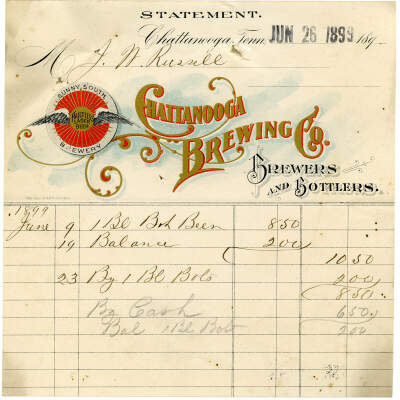 STATEMENT.
Chattanooga, Tenn. JUN 26 1899 189
M J. W. Russell
SUNNY SOUTH
BREWERY
CHATTANOOGA
BREWING CO.
BREWERS
AND BOTTLERS.
1899
June 9 1 Bl Bok Beer 8 50
19 Balance 2 00
10 50
23 By 1 Bl Bots 2 00
8 50
By Cash 6 50
Bal 1 Bl Bots 2 00